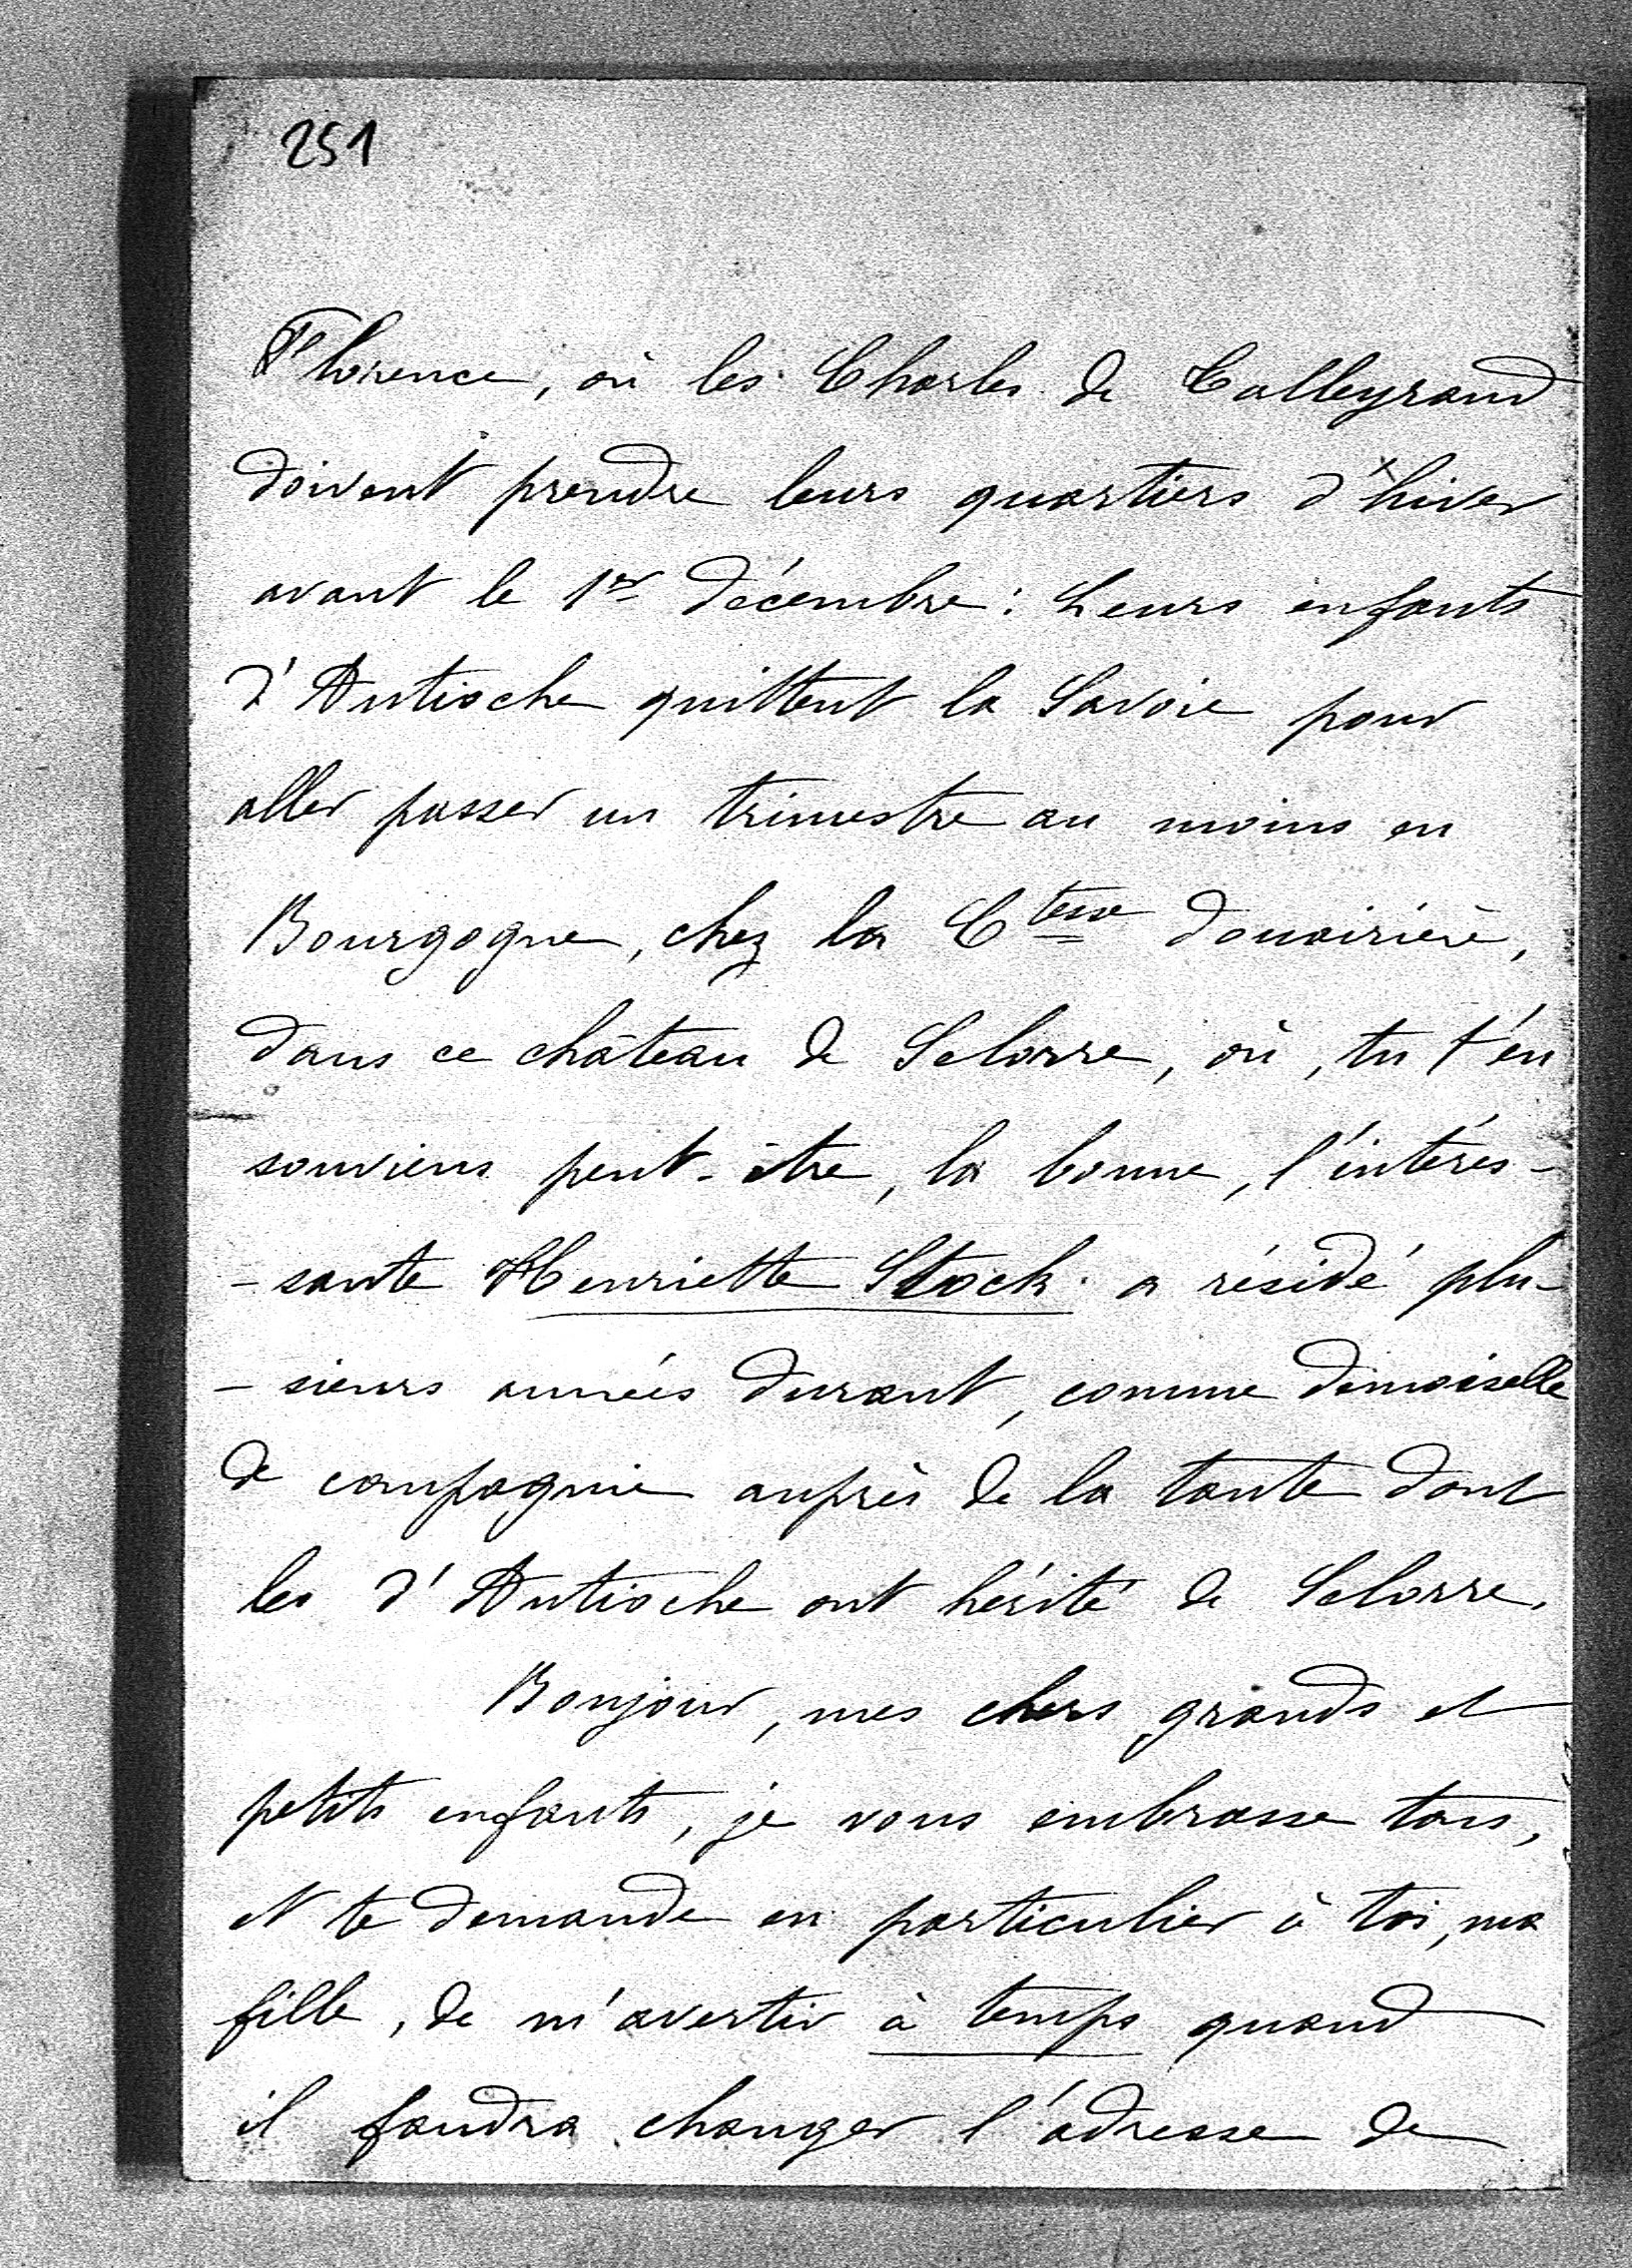 251
Florence, où les Charles de Talleyrand
doivent prendre leurs quartiers d'hiver
avant le 1er décembre : Leurs enfants
d'Antioche quittent la Savoie pour
aller passer un trimestre au moins en
Bourgogne, chez la Ctesse douairière,
dans ce château de Selorre, où, tu t'en
souviens peut-être, la bonne, l'intéres-
-sante Henriette Stock a résidé plu-
-sieurs années durant, comme demoiselle
de compagnie auprès de la tante dont
les d'Antioche ont hérité de Selorre.
Bonjour, mes chers grands et
petits enfants, je vous embrasse tous,
et te demande en particulier à toi, ma
fille, de m'avertir à temps quand
il faudra changer l'adresse de